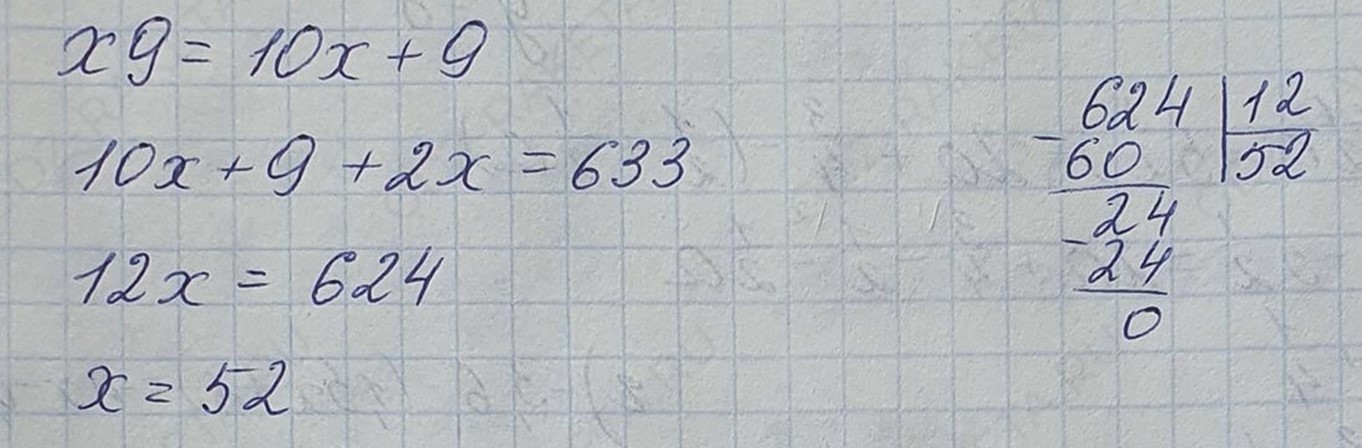 x9 = 10x + 9
10x + 9 + 2x = 633
12x = 624
x = 52
624 | 12
- 60 | 52
24
- 24
0